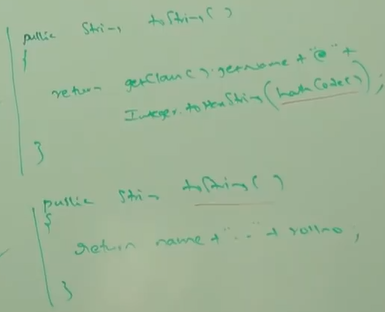 public String toString()
{
return getClass().getName + "@" +
Integer.toHexString(hashCode());
}
public String toString()
{
return name + ".." + rollno;
}